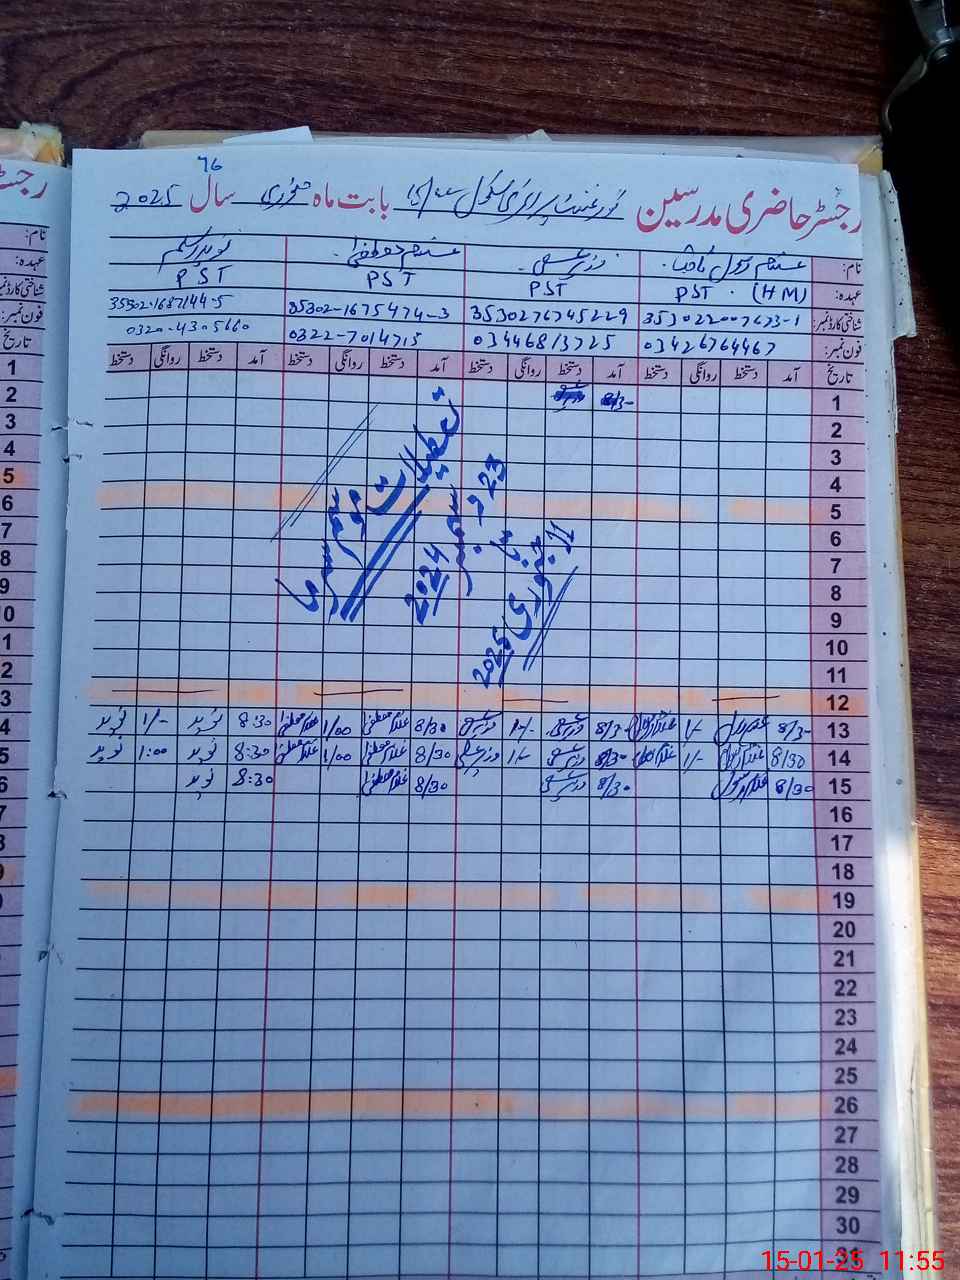 76
رجسٹر حاضری مدرسین گورنمنٹ پرائمری سکول بابت ماہ جنوری سال 2025
نام: غلام رسول ثاقب وزیر علی غلام مصطفیٰ نوید اسلم
عہدہ: PST (HM) PST PST PST
شناختی کارڈ نمبر: 353022007673-1 3530276745229 35302-1675474-3 35302-1687144-5
فون نمبر: 03426764467 03446813725 0322-7014715 0320-4305660
تاریخ آمد دستخط روانگی دستخط آمد دستخط روانگی دستخط آمد دستخط روانگی دستخط آمد دستخط روانگی دستخط
1 8/3-
2
3
4
5
6
7
8
9
10
11
12
تعطیلات موسم سرما
23 دسمبر 2024
تا
11 جنوری 2025
13 8/3- غلام رسول 1/- غلام رسول 8/3- وزیر علی 1/- وزیر علی 8/30 غلام مصطفیٰ 1/00 غلام مصطفیٰ 8:30 نوید 1/- نوید
14 8/30 غلام رسول 1/- غلام رسول 8/30 وزیر علی 1/- وزیر علی 8/30 غلام مصطفیٰ 1/00 غلام مصطفیٰ 8:30 نوید 1:00 نوید
15 8/30 غلام رسول 8/30 وزیر علی 8/30 غلام مصطفیٰ 8:30 نوید
16
17
18
19
20
21
22
23
24
25
26
27
28
29
30
31
15-01-25 11:55